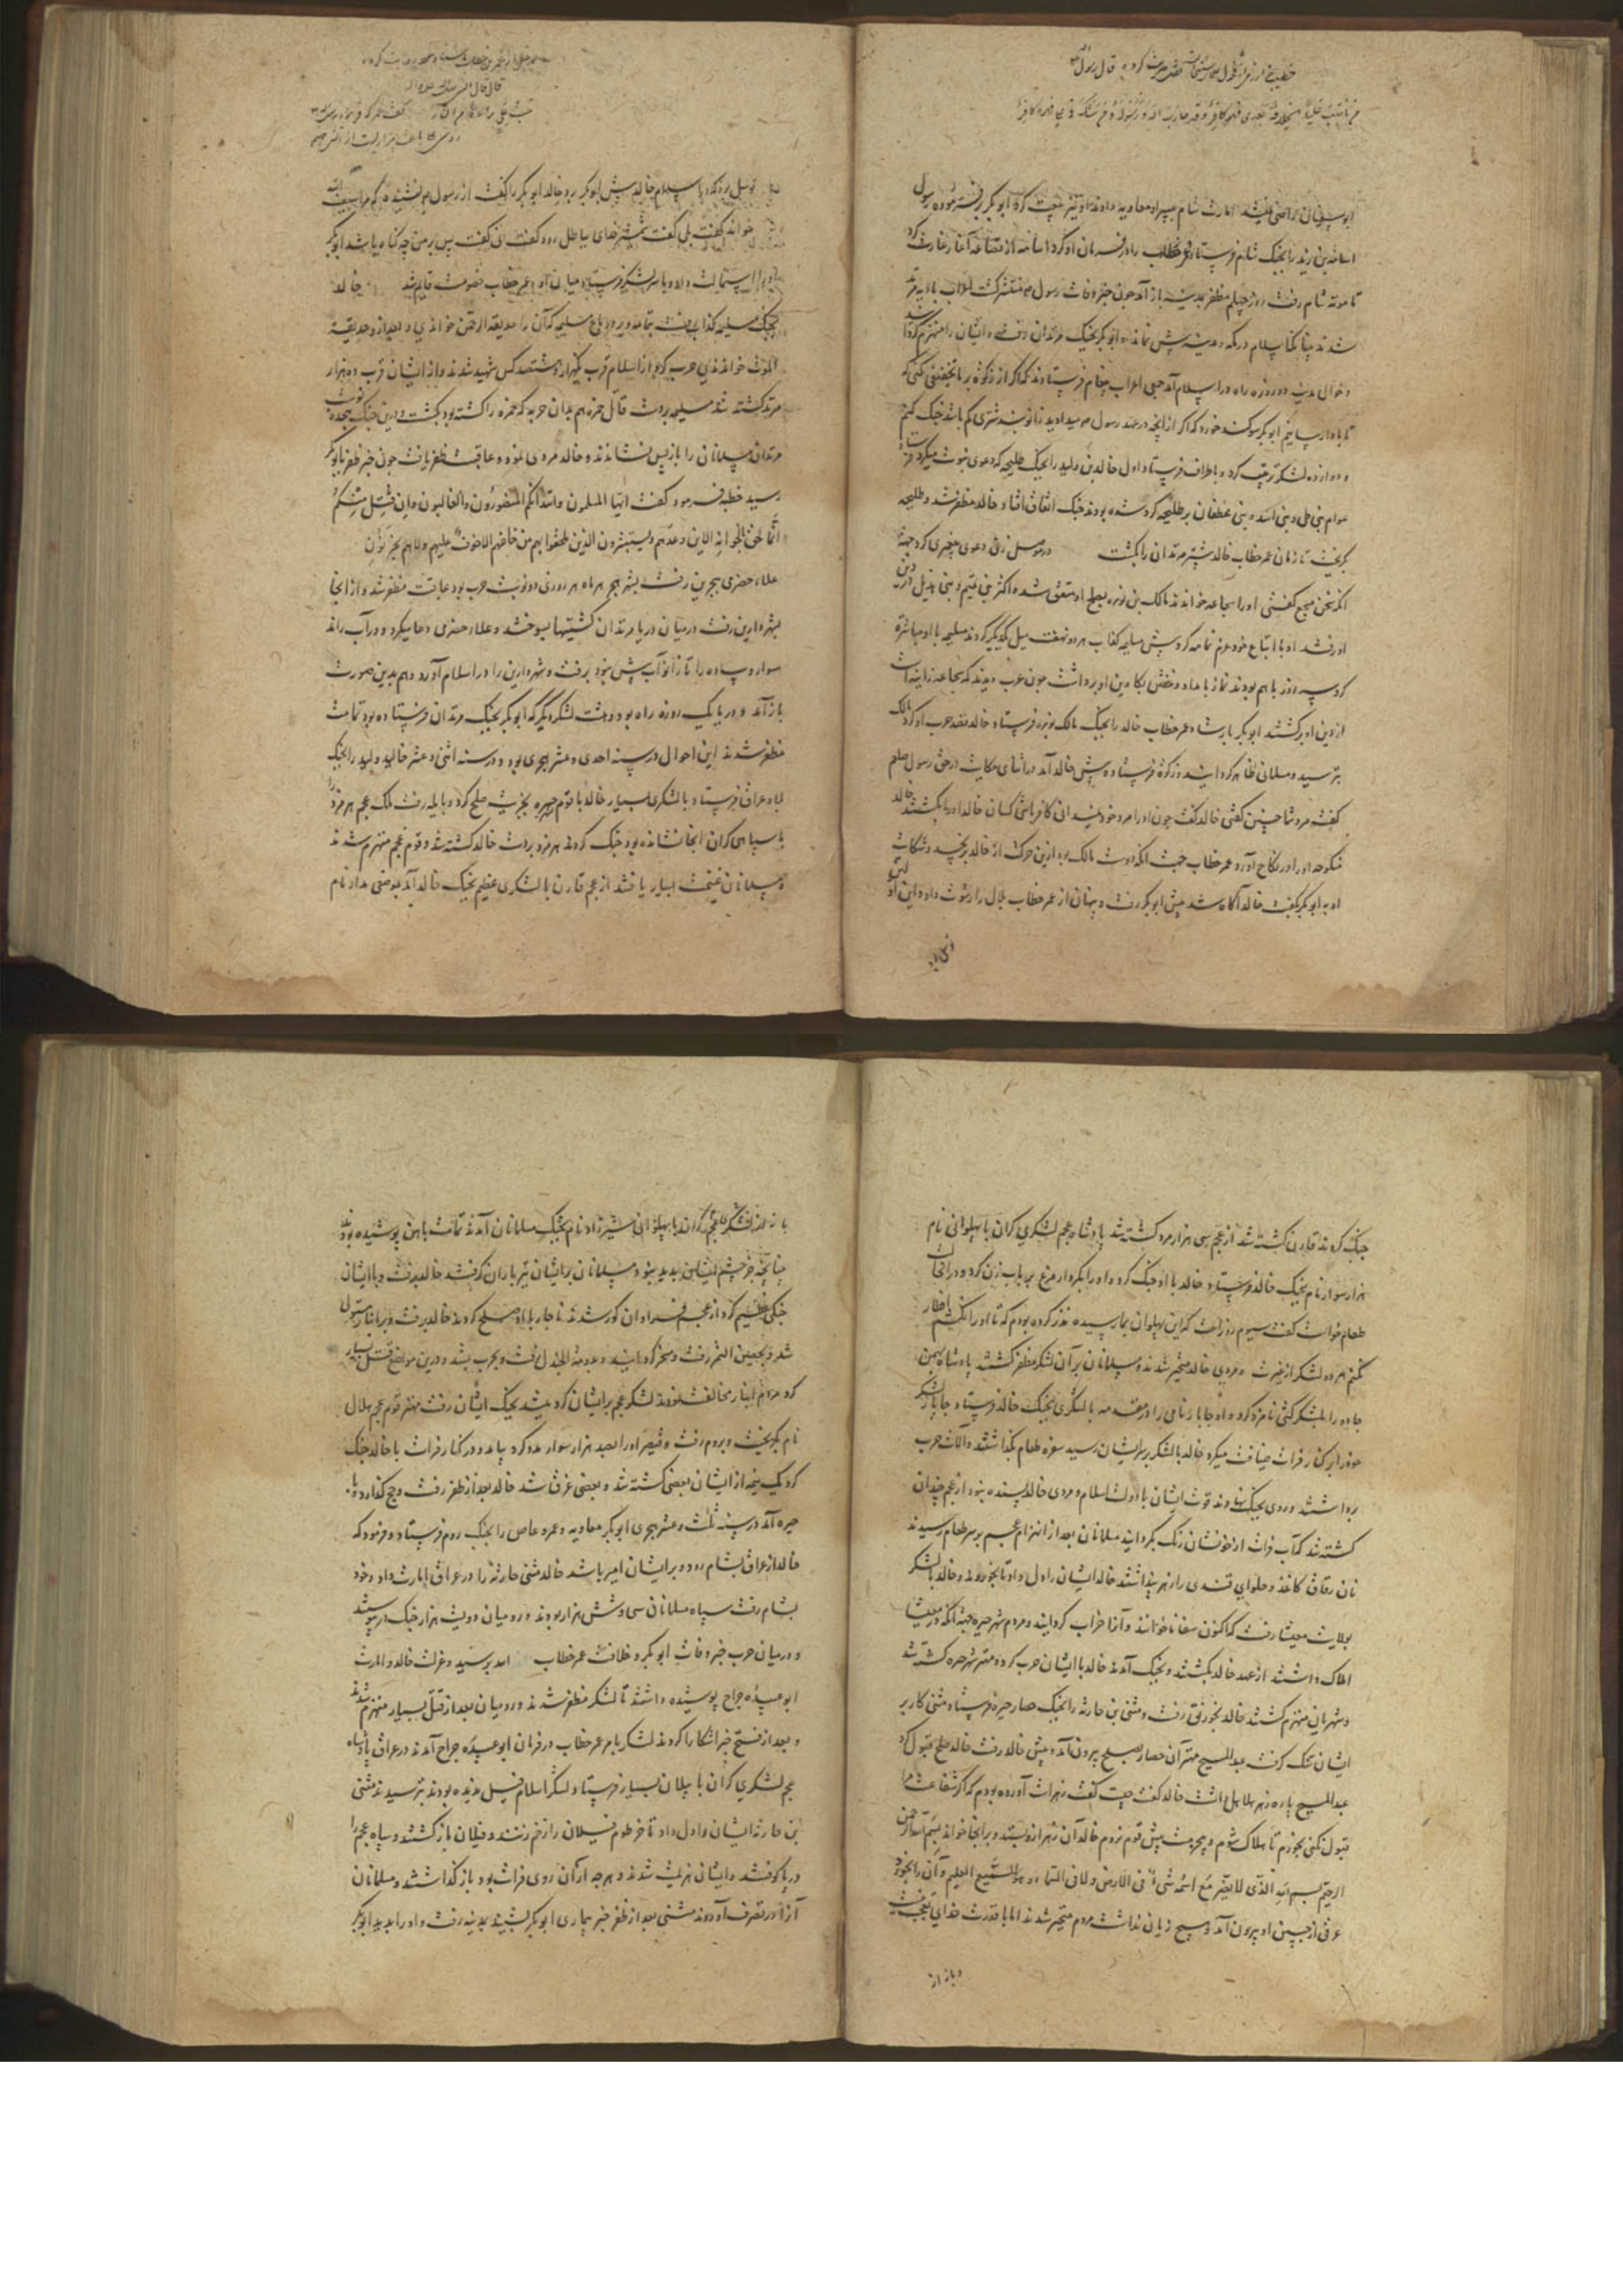 ابوسفیان راضی نمیشد امارت شام بپسر او معاویه دادند او نیز بیعت کرد ابوبکر بر فرموده رسول
اسامة بن زید را بجنک شام فرستاد و عمر خطاب را در فرمان او کرد اسامه از قضاعه آغاز غارت کرد
تا موته شام رفت روز چهلم مظفر بمدینه باز آمد چون خبر وفات رسول منتشر کشت اعراب بادیه مرتد
شدند چنانکه اسلام در مکه و مدینه بیش نماند ابوبکر بجنک مرتدان رفت و ایشان را منهزم کرد
و حوالی مدینه دو روزه راه در اسلام آمد جمعی اعراب پیغام فرستادند که اکر از زکوة بر ما تخفیفی کنی که
ابوبکر سوکند خورد که اکر از آنچه در عهد رسول میدادید زانوبند شتری کم باشد جنک کنم
و دوازده لشکر ترتیب کرد و باطراف فرستاد اول خالد بن ولید را بجنک طلیحه که دعوی نبوت میکرد
عوام بنی طی و بنی اسد و بنی غطفان بر طلیحه کرد شده بودند جنک اتفاق افتاد خالد مظفر شد و طلیحه
بکریخت تا زمان عمر خطاب خالد بیشتر مرتدان را بکشت در موصل زنی دعوی پیغمبری کرد جهت
آنکه سخن مسجع کفتی او را سجاعه خواندند مالک بن نویره بصلح او متفق شد و اکثر بنی تمیم و بنی هذیل در دین
او رفتند او با اتباع خود عزم یمامه کرد پیش مسیلمه کذاب هر دو نهفت میل یکدیکر کردند مسیلمه با او مباشرة
کرد سه روز با هم بودند نماز بامداد و خفتن بکابین او برداشت چون عرب دیدند که سجاعه زانیه است
از دین او برکشتند ابوبکر بارشاد عمر خطاب خالد را بجنک مالک نویره فرستاد خالد قصد حرب او کرد مالک
بترسید و مسلمانی ظاهر کردانید و زکوة فرستاد و پیش خالد آمد در اثنای حکایت در حق رسول صلعم
کفت مرد شما چنین کفتی خالد کفت چون او را مرد خود نمیدانی کافر باشی کسان خالد او را بکشتند خالد
منکوحه او را در نکاح آورد عمر خطاب جهت آنکه دوست مالک بود ازین حرکت از خالد برنجید و شکایت
او به ابوبکر بکفت خالد آکاه شد پیش ابوبکر رفت و پنهان از عمر خطاب بلال را رشوت داد و این اول
خواند کفت بلی کفت شمشیر خدای بباطل رود کفت نی کفت پس بر من چه کناه باشد ابوبکر
او را استمالت داد و با سر لشکر فرستاد میان او و عمر خطاب خصومت قایم شد خالد
بجنک مسیلمه کذاب رفت بیمامه و بر در باغ مسیلمه که آن را حدیقة الرحمن خواندی و بعد از و حدیقة
الموت خواندندی حرب کردند از اسلام قرب یکهزار و هشتصد کس شهید شدند و از ایشان قرب ده هزار
مرتد کشته شد مسیلمه بر دست قاتل حمزه هم بدان حربه که حمزه را کشته بود بکشت و درین جنک هجده نوبت
مرتدان مسلمانان را باز پس نشاندند و خالد مردی نمود و عاقبت ظفر یافت چون خبر ظفر بابوبکر
رسید خطبه فرمود کفت ایها المسلمون
علاء حضرمی ببحرین رفت بشهر هجر هر ماه هر روزی دو نوبت حرب بود عاقبت مظفر شد و از آنجا
بشهر دارین رفت در میان دریا مرتدان کشتیها بسوختند و علاء حضرمی دعا میکرد و در آب راند
سوار و پیاده را تا زانو آب بیش نبود برفت و شهر دارین را در اسلام آورد و هم بدین صورت
باز آمد و دریا یک روزه راه بود و هشت لشکر دیکر که ابوبکر بجنک مرتدان فرستاده بود تمامت
مظفر شدند این احوال در سنه احدی و عشر هجری بود و در سنه اثنی و عشر خالد ولید را بجنک
بلاد عراق فرستاد با لشکری بسیار خالد با قوم حیره بجزیت صلح کرد و بابله رفت ملک عجم هرمز را
با سپاهی کران آنجا نشانده بود جنک کردند هرمز بر دست خالد کشته شد و قوم عجم منهزم شدند
و مسلمانان غنیمت بسیار یافتند از عجم قارن با لشکری عظیم بجنک خالد آمد بموضعی مدار نام
جنک کردند قارن کشته شد از عجم سی هزار مرد کشته شد پادشاه عجم لشکری کران با پهلوانی نام
هزار سوار نام بجنک خالد فرستاد خالد با او جنک کرد و او را بکردار مرغ بر باب زن کرد و در آنجا
طعام خواست کفت سیوم روز است که این پهلوان بما رسیده نذر کرده بودم که تا او را نکشم افطار
نکنم هر دو لشکر از غیرت و مردی خالد متحیر شدند و مسلمانان بر آن لشکر مظفر کشتند پادشاه بهمن
جادو را بلشکر کشی نامزد کرد و او جابان نامی را در مقدمه با لشکری بجنک خالد فرستاد جابان لشکر
خود را بر کنار فرات ضیافت میکرد خالد با لشکر بر سر ایشان رسید سفره طعام بکذاشتند و آلات حرب
برداشتند و روی بجنک نهادند قوت ایشان با دولت اسلام و مردی خالد بسنده نبود از عجم چندان
کشته شد که آب فرات از خونشان رنک بکردانید مسلمانان بعد از انهزام عجم بر سر طعام رسیدند
نان رقاق کاغذ و حلوای قندی را زهر پنداشتند خالد ایشان را دل داد تا بخوردند و خالد با لشکر
املاک داشتند از عهد خالد بکشتند و بجنک آمدند خالد با ایشان حرب کرد و مهتر شهر حیره کشته شد
و شهریان منهزم کشتند خالد بخورنق رفت و مثنی بن حارثه را بجنک حصار حیره فرستاد مثنی کار بر
ایشان تنک کرفت عبدالمسیح مهتر آن حصار بصلح بیرون آمد و پیش خالد رفت خالد صلح قبول کرد
عبدالمسیح پاره زهر هلاهل داشت خالد کفت چیست کفت زهر است آورده بودم که اکر شفاعت مرا
قبول نکنی بخورم تا هلاک شوم و بیحرمت پیش قوم نروم خالد آن زهر ازو بستد و بر آنجا خواند بسم الله الرحمن
الرحیم بسم الله الذی لا یضر مع اسمه شیء فی الارض و لا فی السماء و هو السمیع العلیم و آن را بخورد
عرق از جبین او بیرون آمد و هیچ زیان نداشت مردم متحیر شدند اما با قدرت خدای تعجب نیست
و باز از
باز از لشکر عجم کران با پهلوانی شیرزاد نام بجنک مسلمانان آمدند تمامت باهن پوشیده بودند
چنانچه جز چشم ایشان پدید نبود مسلمانان بر ایشان تیرباران کرفتند خالد برفت و با ایشان
جنکی عظیم کرد از عجم فراوان کور شدند ناچار با او صلح کردند خالد برفت و بر انبار مستولی
شد و بعین التمر رفت و مسخر کردانید و بدومة الجندل رفت و بحرب بستد و درین مواضع قتل بسیار
کرد مردم انبار مخالف شدند لشکر عجم بر ایشان کرد آمدند بجنک ایشان رفت مهتر قوم عجم هلال
نام بکریخت و بروم رفت و قیصر او را بصد هزار سوار مدد کرد بیامد و در کنار فرات با خالد جنک
کرد یک نیمه از ایشان بعضی کشته شد و بعضی غرق شد خالد بعد از ظفر رفت و حج کذارد و با
حیره آمد در سنه ثلث و عشر هجری ابوبکر معاویه و عمرو عاص را بجنک روم فرستاد و فرمود که
خالد از عراق بشام رود و بر ایشان امیر باشد خالد مثنی حارثه را در عراق امارت داد و خود
بشام رفت سپاه مسلمانان سی و شش هزار بودند و رومیان دویست هزار جنک در پیوستند
و در میان حرب خبر وفات ابوبکر و خلافت عمر خطاب برسید و عزلت خالد و امارت
ابو عبیده جراح پوشیده داشتند تا لشکر مظفر شدند و رومیان بعد از قتل بسیار منهزم شدند
و بعد از فتح خبر آشکارا کردند لشکر بامر عمر خطاب در فرمان ابو عبیده جراح آمدند در عراق پادشاه
عجم لشکری کران با پیلان بسیار فرستاد لشکر اسلام فیل ندیده بودند بترسیدند مثنی
بن حارثه ایشان را دل داد تا خرطوم فیلان را زخم زدند و فیلان باز کشتند و سپاه عجم را
در پا کوفتند و ایشان هزیمت شدند و هرچه از آن روی فرات بود باز کذاشتند و مسلمانان
آن را در تصرف آوردند مثنی بعد از ظفر خبر بیماری ابوبکر شنید بمدینه رفت و او را بدید ابوبکر